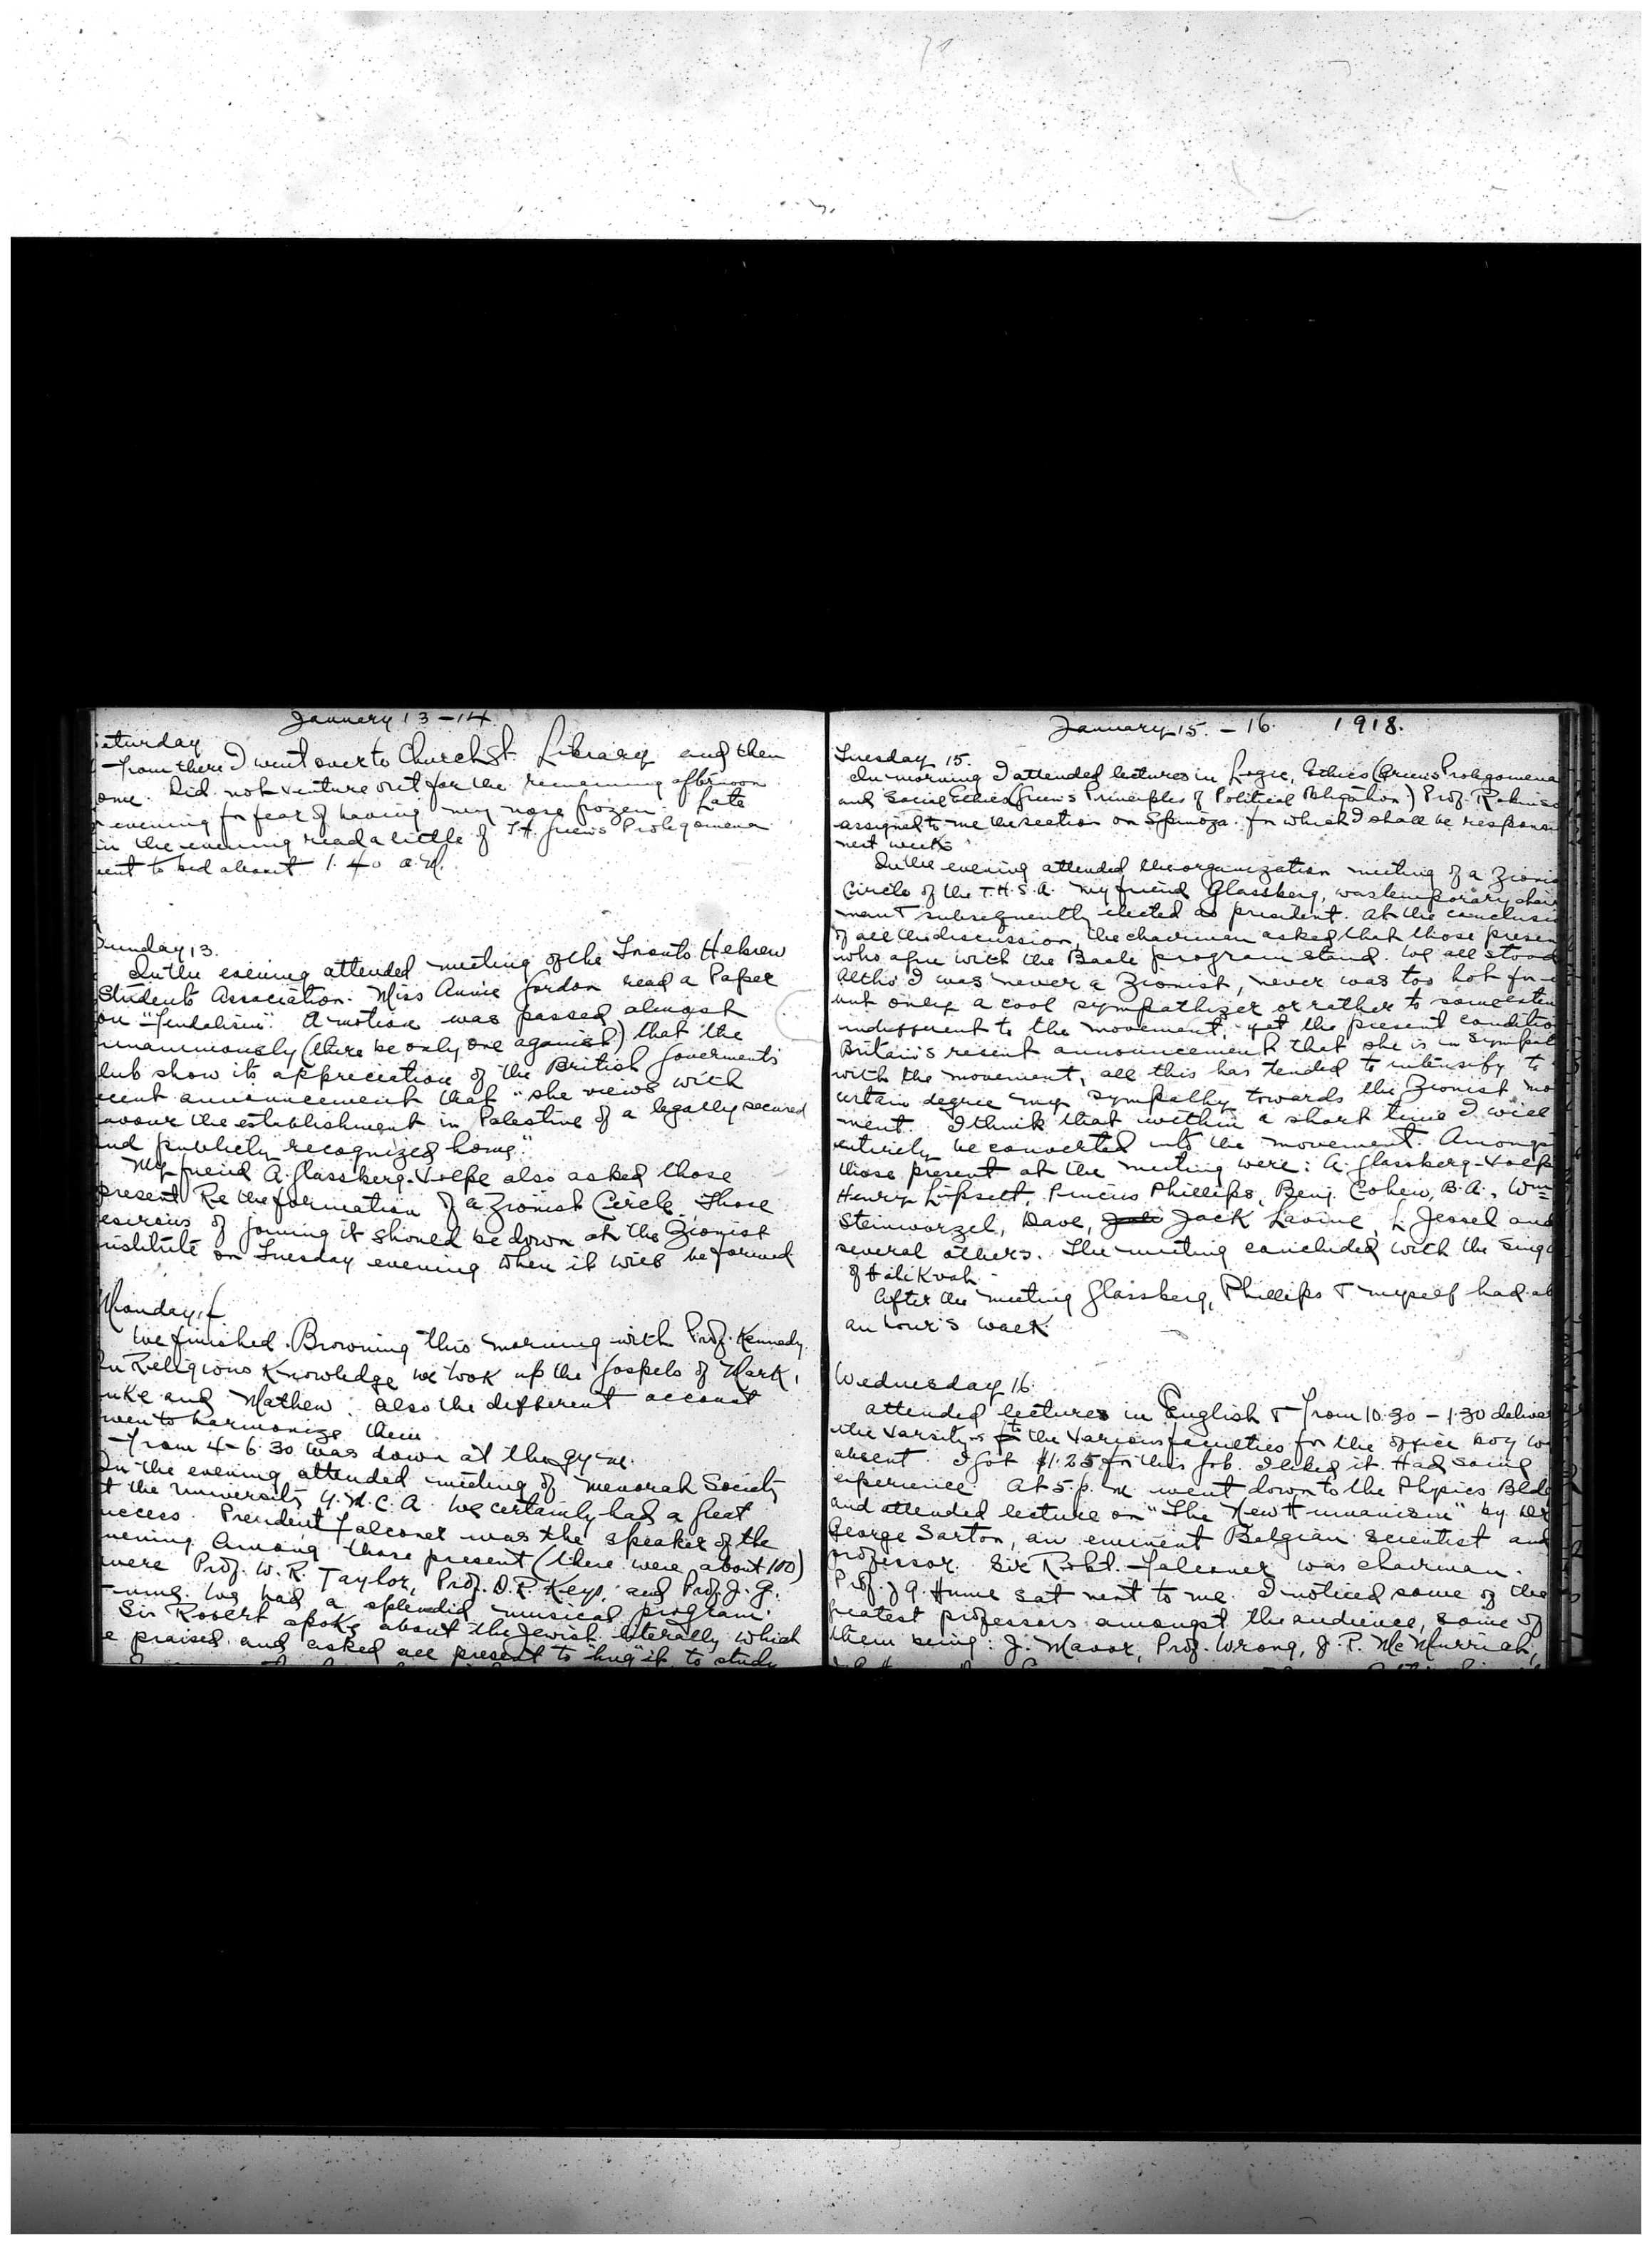 January 13-14
aturday
From there I went over to Church St. Library and then
ome. Did not venture out for the remaining afternoon
evening for fear of having my nose frozen. Late
in the evening read a little of T.H. Green's Prolegomena
ent to bed about 1.40 a.m.
Sunday 13.
In the evening attended meeting of the Toronto Hebrew
Students Association. Miss Annie Gordon read a Paper
on "Feudalism". A motion was passed almost
unanimously (there be only one against) that the
lub show its appreciation of the British Goverment's
ecent announcement that "she views with
avour the establishment in Palestine of a legally secured
nd publicly recognized home."
My friend A. Glassberg-Volpe also asked those
present Re the formation of a Zionist Circle. Those
esirous of joining it should be down at the Zionist
nstitute on Tuesday evening when it will be formed
Monday 14
We finished Browning this morning with Prof. Kennedy.
In Religious Knowledge we took up the Gospels of Mark,
uke and Mathew. Also the different account
to harmonize them.
From 4-6.30 was down at the gym.
In the evening attended meeting of Menorah Society
t the University Y.M.C.A. We certainly had a great
uccess. President Falconer was the speaker of the
vening Among those present (there were about 100)
were Prof. W.R. Taylor, Prof. D.R. Keys, and Prof. J.G.
ume. We had a splendid musical program.
Sir Robert spoke about the Jewish literally which
e praised and asked all present to "hug" it, to study
January 15.-16. 1918.
Tuesday 15.
In morning I attended lectures in Logic, Ethics (Green's Prolegomena
and Social Ethics (Green's Principles of Political Obligation) Prof. Robinso
assigned to me the section on Spinoza. for which I shall be respons
next week.
In the evening attended the organization meeting of a Zionis
Circle of the T.H.S.A. My friend Glassberg, was temporary chair
man & subsequently elected as president. At the conclusi
of all the discussion, the chairman asked that those presen
who agree with the Basle program stand. We all stood
Altho' I was never a Zionist, never was too hot for
but only a cool sympathizer or rather to some exten
indifferent to the movement, yet the present conditio
Britain's resent announcement that she is in sympat
with the movement, all this has tended to intensify to
certain degree my sympathy towards the Zionist mo
ment. I think that within a short time I will
entirely be converted into the movement. Amongs
those present at the meeting were: A. Glassberg-Volp
Henry Lipsett, Pincus Phillips, Benj. Cohen, B.A., Wm
Steinworzel, Dave, Jack Lavine, L. Jessel and
several others. The meeting concluded with the sing
of Hatikvah.
After the meeting Glassberg, Phillips & myself had ab
an hour's walk
Wednesday 16.
attended lectures in English & from 10.30 - 1.30 deliver
the Varsitys to the various faculties for the office boy w
absent. I got $1.25 for this job. I liked it. Had some
experience. At 5 p.m. went down to the Physics Bldg
and attended lecture on "The New Humanism" by Dr
George Sarton, an eminent Belgian scientist and
professor. Sir Robt. Falconer was chairman.
Prof. J.G. Hume sat next to me. I noticed some of the
greatest professors amongst the audience, some of
them being: J. Mavor, Prof. Wrong, J.P. McMurrich,